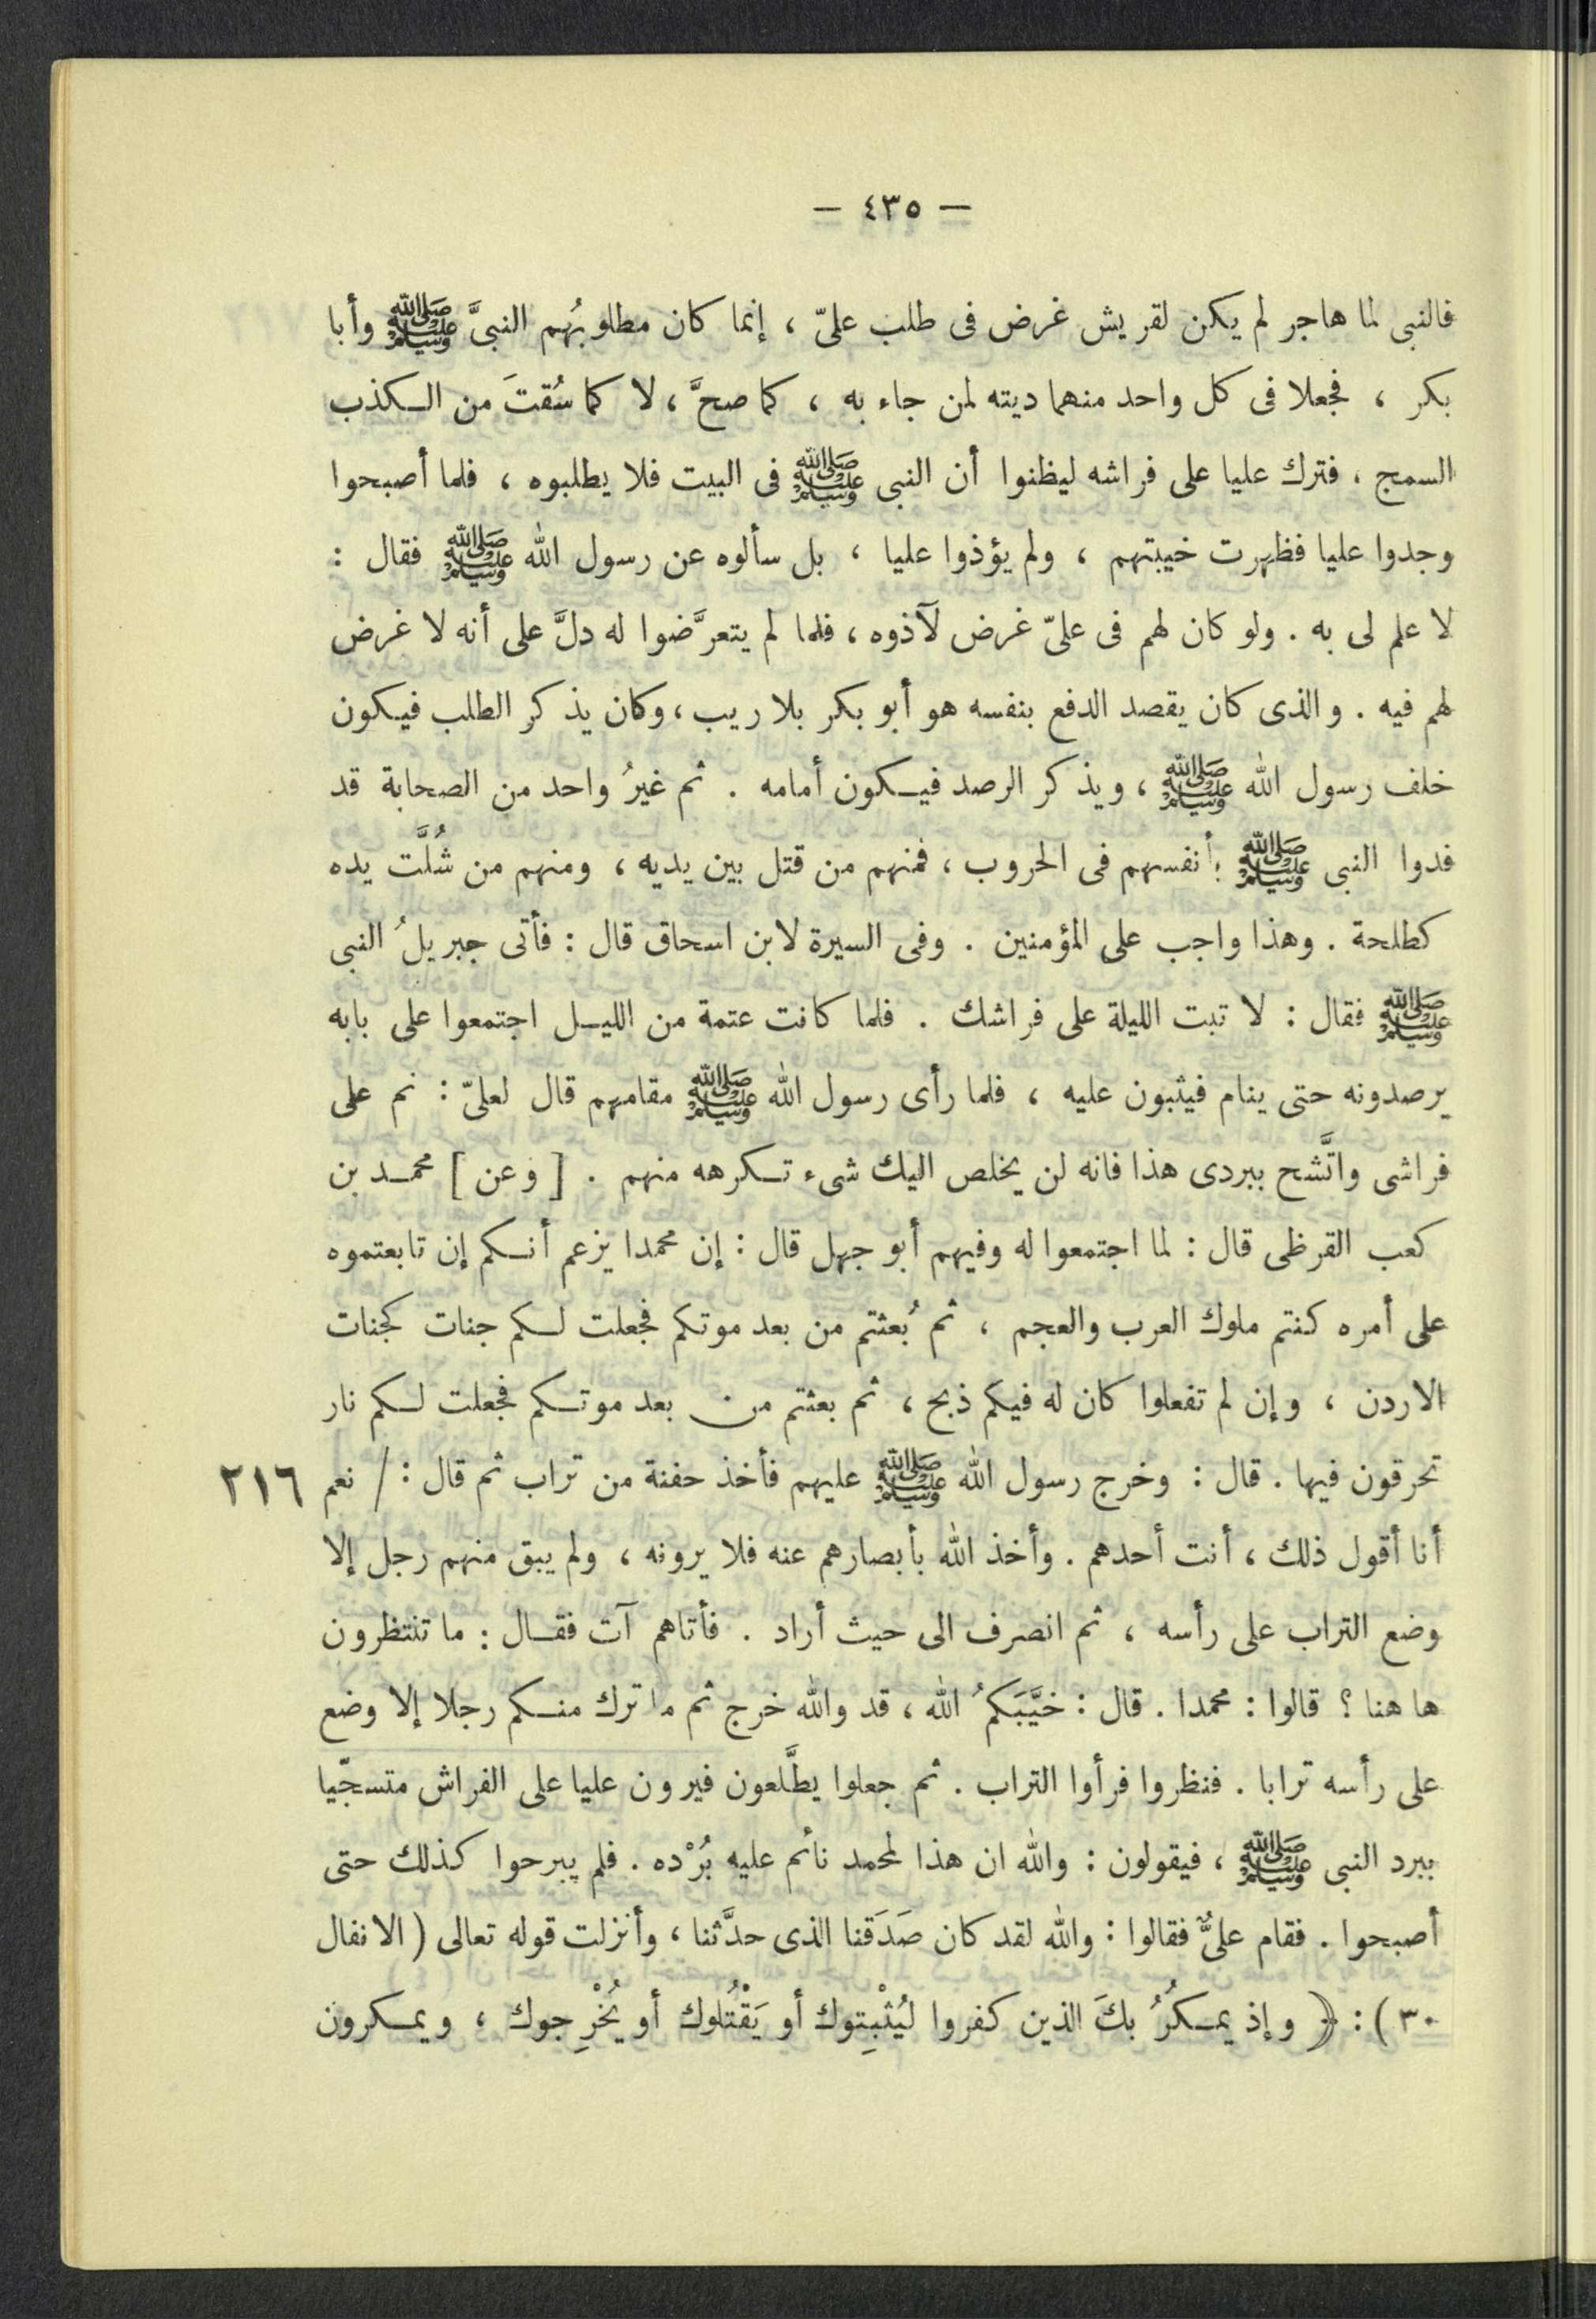 — ٤٣٥ —
فالنبى لما هاجر لم يكن لقريش غرض فى طلب علىّ ، إنما كان مطلوبُهم النبىَّ ﷺ وأبا
بكر ، فجعلا فى كل واحد منهما ديته لمن جاء به ، كما صحَّ ، لا كما سُقتَ من الكذب
السمج ، فترك عليا على فراشه ليظنوا أن النبى ﷺ فى البيت فلا يطلبوه ، فلما أصبحوا
وجدوا عليا فظهرت خيبتهم ، ولم يؤذوا عليا ، بل سألوه عن رسول الله ﷺ فقال :
لا علم لى به . ولو كان لهم فى علىّ غرض لآذوه ، فلما لم يتعرَّضوا له دلَّ على أنه لا غرض
لهم فيه . والذى كان يقصد الدفع بنفسه هو أبو بكر بلا ريب ، وكان يذكر الطلب فيكون
خلف رسول الله ﷺ ، ويذكر الرصد فيكون أمامه . ثم غيرُ واحد من الصحابة قد
فدوا النبى ﷺ بأنفسهم فى الحروب ، فمنهم من قتل بين يديه ، ومنهم من شُلَّت يده
كطلحة . وهذا واجب على المؤمنين . وفى السيرة لابن اسحاق قال : فأتى جبريلُ النبى
ﷺ فقال : لا تبت الليلة على فراشك . فلما كانت عتمة من الليل اجتمعوا على بابه
يرصدونه حتى ينام فيثبون عليه ، فلما رأى رسول الله ﷺ مقامهم قال لعلىّ : نم على
فراشى واتَّشح ببردى هذا فانه لن يخلص اليك شىء تكرهه منهم . [ وعن ] محمد بن
كعب القرظى قال : لما اجتمعوا له وفيهم أبو جهل قال : إن محمدا يزعم أنكم إن تابعتموه
على أمره كنتم ملوك العرب والعجم ، ثم بُعثتم من بعد موتكم فجعلت لكم جنات كجنات
الاردن ، وإن لم تفعلوا كان له فيكم ذبح ، ثم بعثتم من بعد موتكم فجعلت لكم نار
تحرقون فيها . قال : وخرج رسول الله ﷺ عليهم فأخذ حفنة من تراب ثم قال : / نعم ٢١٦
أنا أقول ذلك ، أنت أحدهم . وأخذ الله بأبصارهم عنه فلا يرونه ، ولم يبق منهم رجل إلا
وضع التراب على رأسه ، ثم انصرف الى حيث أراد . فأتاهم آت فقال : ما تنتظرون
ها هنا ؟ قالوا : محمدا . قال : خيَّبَكمُ الله ، قد والله خرج ثم ما ترك منكم رجلا إلا وضع
على رأسه ترابا . فنظروا فرأوا التراب . ثم جعلوا يطَّلعون فيرون عليا على الفراش متسجّيا
ببرد النبى ﷺ ، فيقولون : والله ان هذا لمحمد نائم عليه بُرْده . فلم يبرحوا كذلك حتى
أصبحوا . فقام علىٌّ فقالوا : والله لقد كان صَدَقنا الذى حدَّثنا ، وأنزلت قوله تعالى ( الانفال
٣٠ ) : ﴿ وإذ يمكُرُ بكَ الذين كفروا ليُثْبِتوك أو يَقْتُلوك أو يُخْرِجوك ، ويمكرون